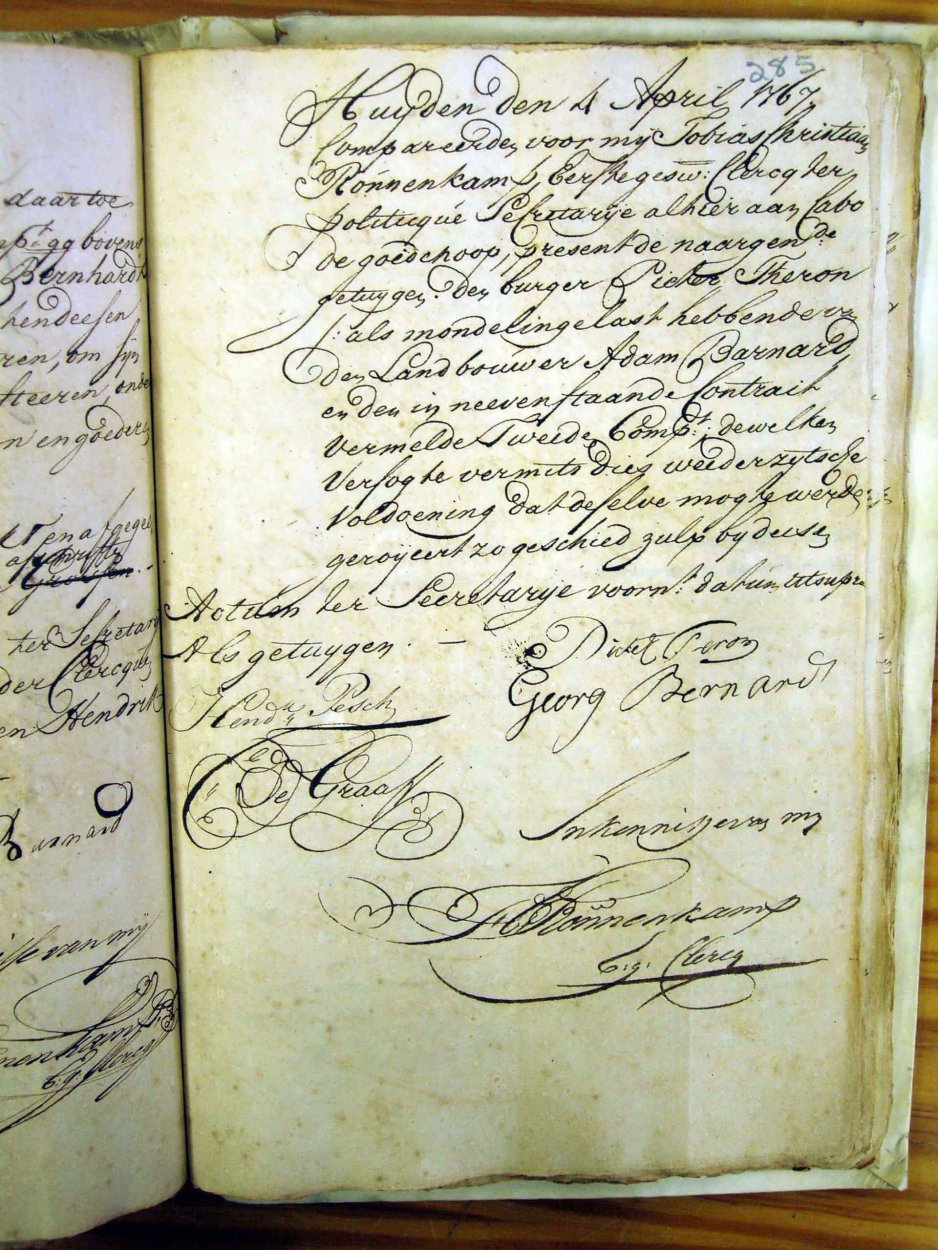 daartoe
bovens
Bernhard
hendeesen
ren, om sijn
Heeren, onde
n en goederen
ter Secretar
der Clercq
en Hendrik
Barnard
van mij
E:g: Clercq
285
Huyden den 4 April 1767,
Compareerden voor mij Tobias Christiaan
Rönnenkamp, Eerste gesw: Clercq ter
politicque Secretarije alhier aan Cabo
de goede hoop, present de naargen:de
getuygen. den burger Pieter Theron
/: als mondelinge last hebbende van
den Landbouwer Adam Barnard,
en den in neevenstaande Contract
vermelde Tweede Comp:t, dewelken
versogte vermits dies weederzytsche
voldoening dat deselve mogte werden
geroijeert zo geschied zulx by deesen
Actum ter Secretarije voorn:t datum utsupra
Als getuygen. —
Pieter Teron
Georg Bernard
Hend:k Pesch
De Graaff
In kennisse van my
Rönnenkamp
E:g: Clercq